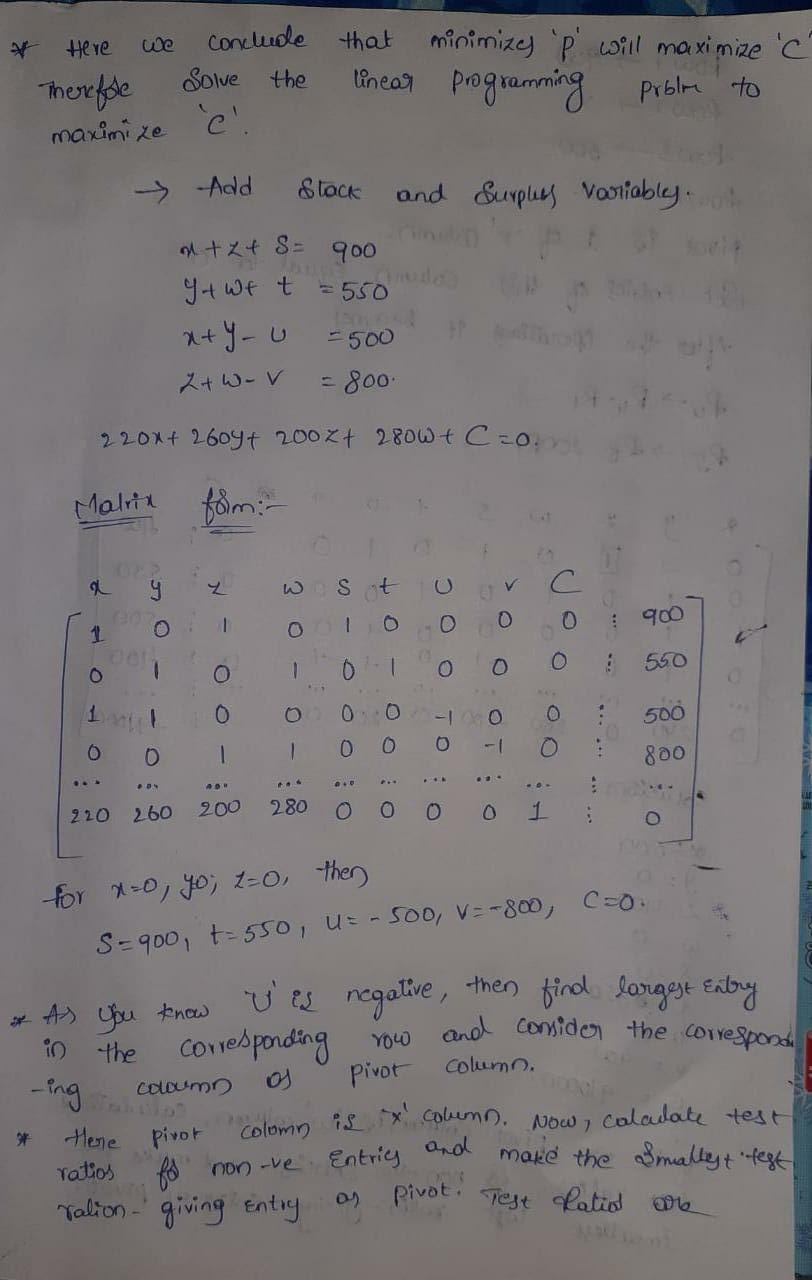 * Here we conclude that minimizes 'p' will maximize 'C'
Therefore Solve the linear programming prblm to
maximize 'C'.
→ Add Stack and Surplus Variables.
x + z + S = 900
y + w + t = 550
x + y - u = 500
z + w - v = 800.
220x + 260y + 200z + 280w + C = 0.
Matrix form:-
x y z w s t u v C
1 0 1 0 1 0 0 0 0 ⋮ 900
0 1 0 1 0 1 0 0 0 ⋮ 550
1 1 0 0 0 0 -1 0 0 ⋮ 500
0 0 1 1 0 0 0 -1 0 ⋮ 800
... ... ... ... ... ... ... ... ... ⋮ ...
220 260 200 280 0 0 0 0 1 ⋮ 0
for x=0, y0; z=0, then
S=900, t=550, u=-500, v=-800, C=0.
* As you know 'U' is negative, then find largest Entry
in the corresponding row and consider the correspond
-ing coloumn as pivot column.
* Here pivot colomn is 'x' column. Now, calculate test
ratios for non-ve Entries and make the Smallest test
ration- giving Entry as pivot. Test Ratios are